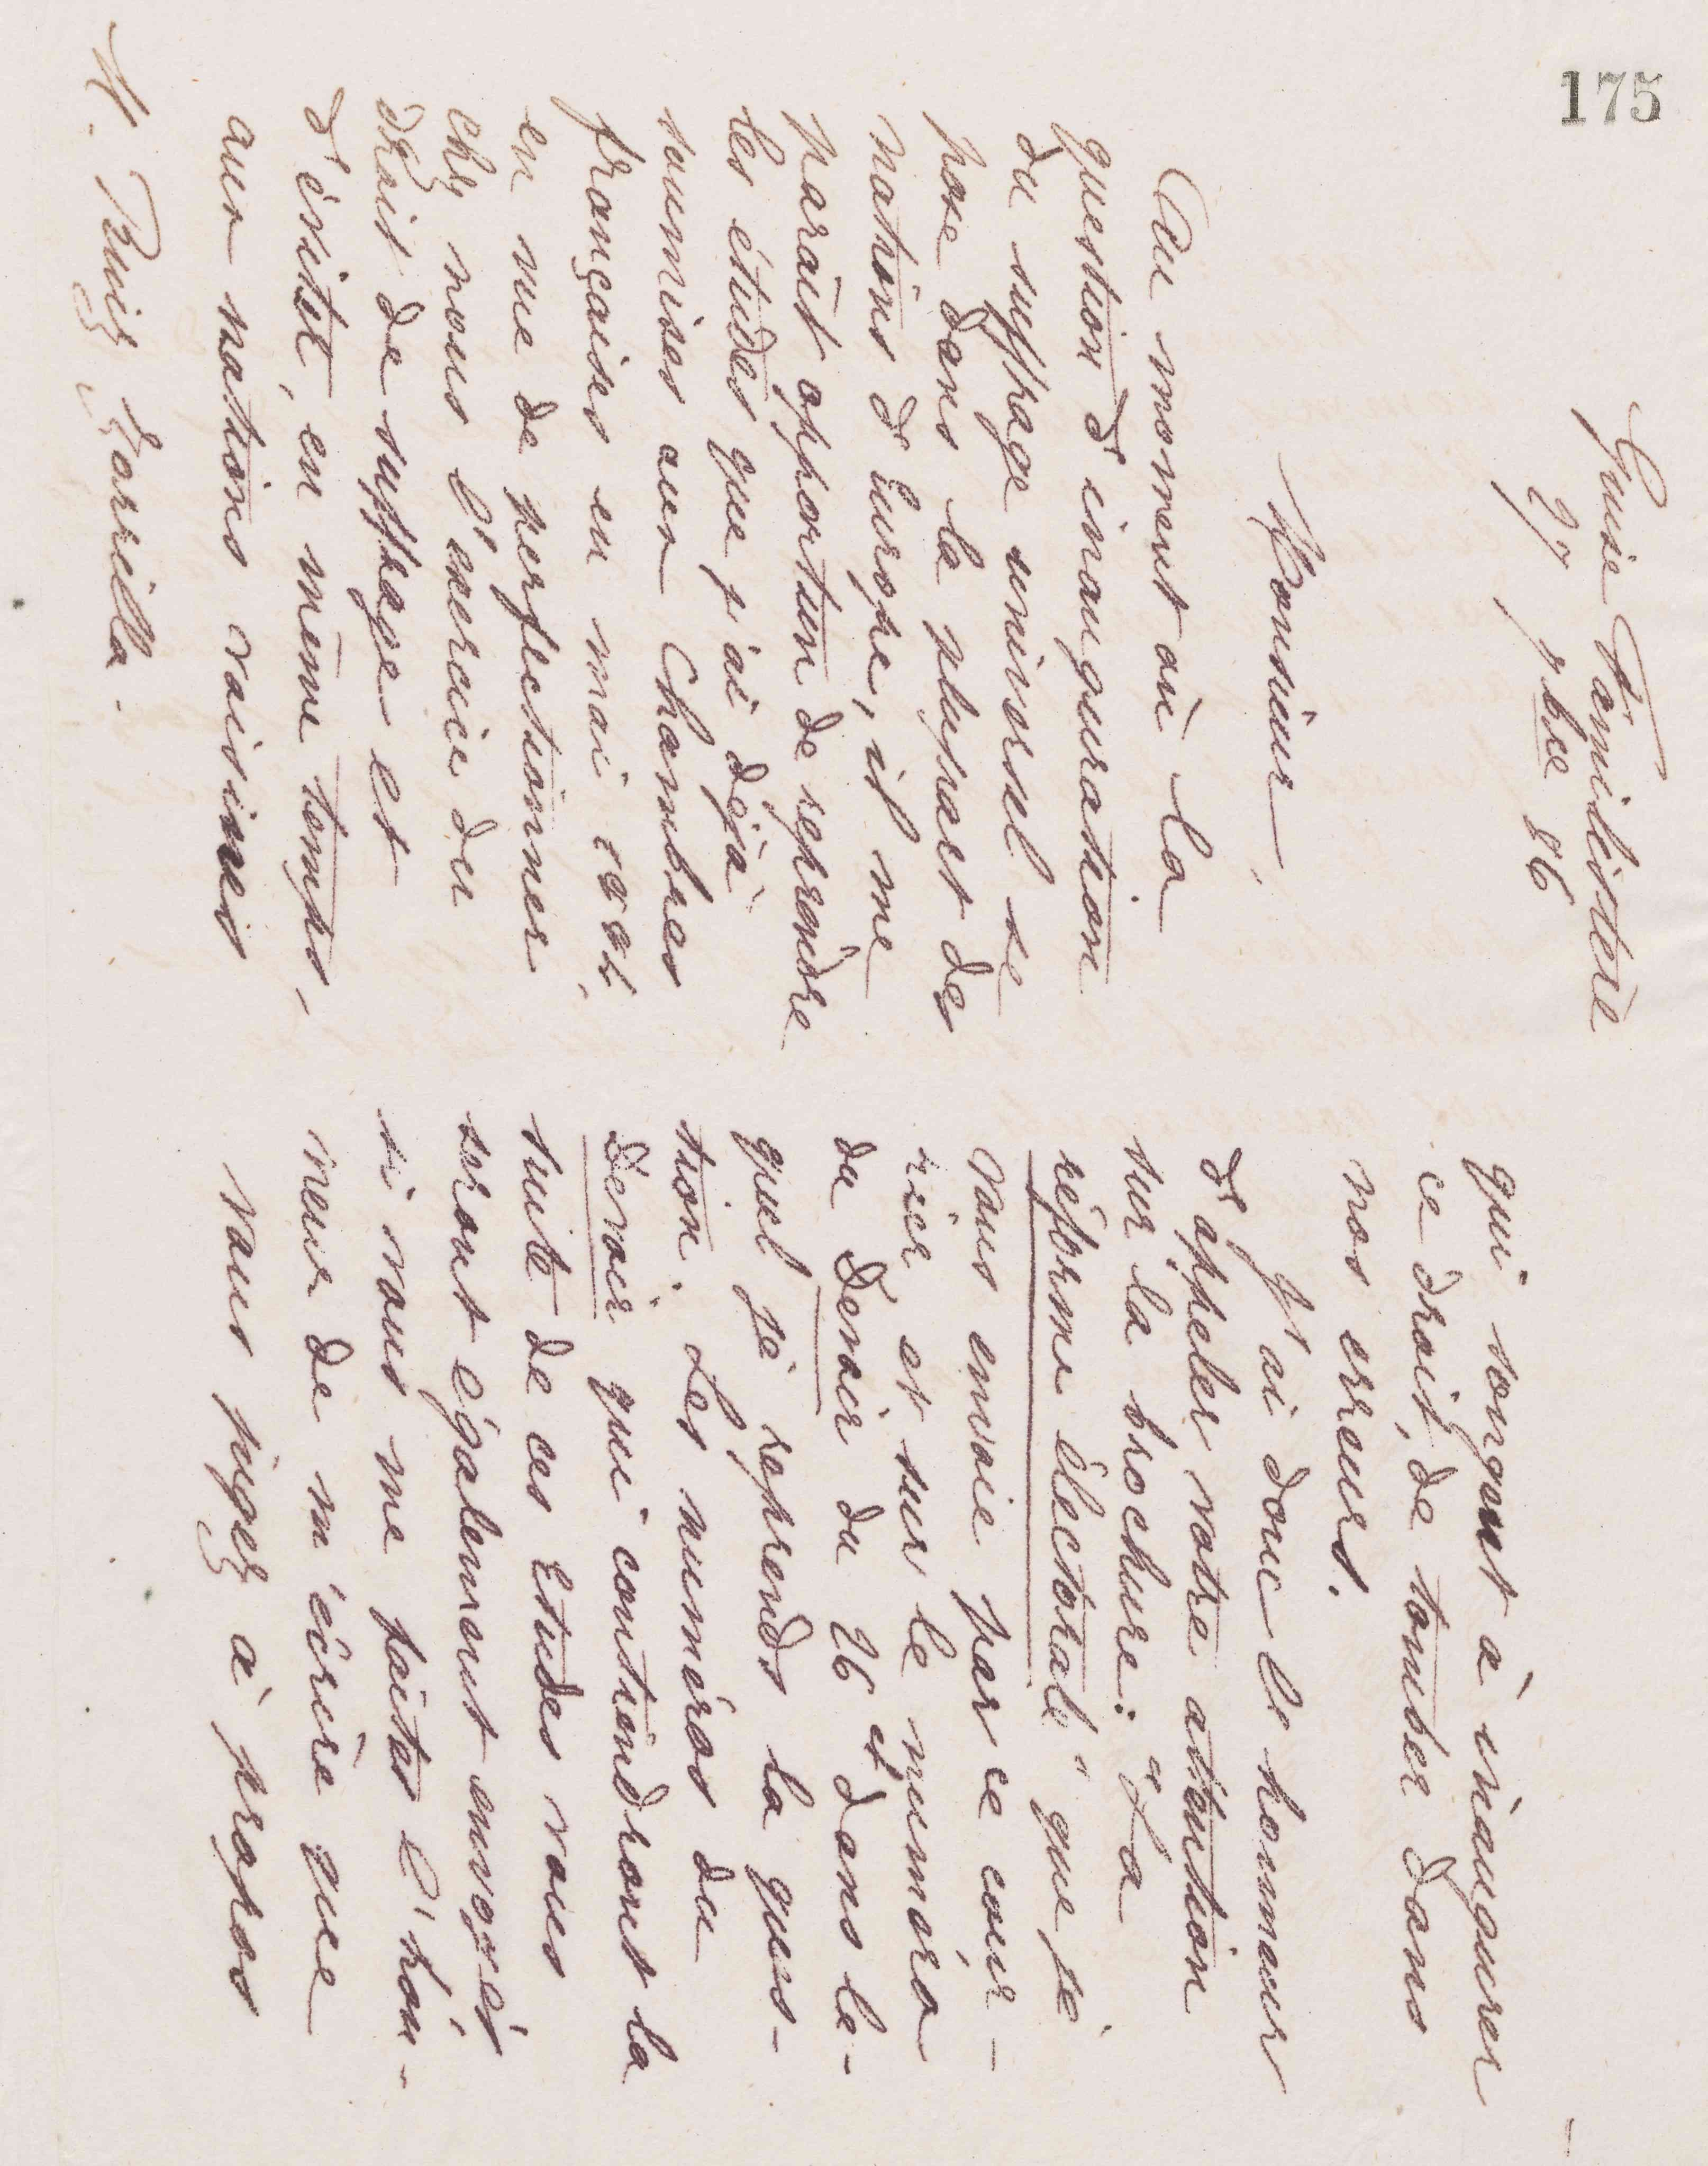 175
Guise Familistère
27 7bre 86
Monsieur,
Au moment où la
question d'inauguration
du suffrage universel se
pose dans la plupart des
nations d'Europe, il me
paraît opportun de reprendre
les études que j'ai déjà
soumises aux Chambres
françaises en mai 1884,
en vue de perfectionner
chez nous l'exercice du
droit de suffrage et
d'éviter, en même temps,
aux nations voisines
M. Ruiz Zorrilla.
qui songent à inaugurer
ce droit, de tomber dans
nos erreurs.
J'ai donc l'honneur
d'appeler votre attention
sur la brochure: "La
réforme électorale" que je
vous envoie par ce cour-
rier et sur le numéro
du Devoir du 26 ct dans le-
quel je reprends la ques-
tion. Les numéros du
Devoir qui contiendront la
suite de ces études vous
seront également envoyés
si vous me faites l'hon-
neur de m'écrire que
vous jugez à propos